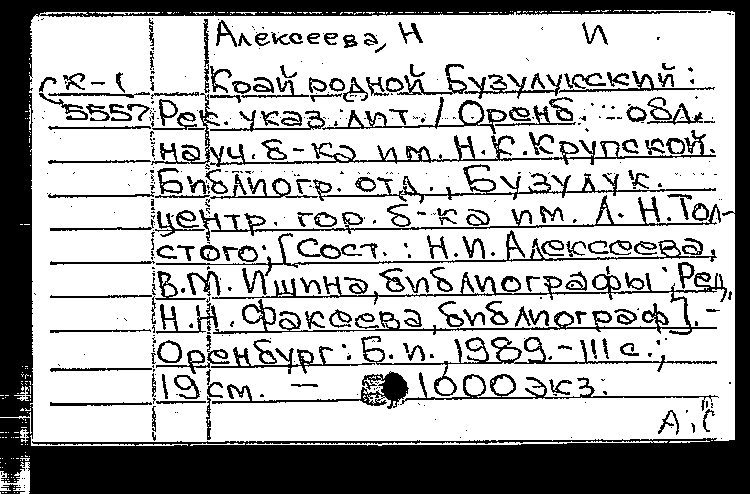 Алексеева, Н И
СК-1 Край родной Бузулукский:
5557 Рек. указ. лит. / Оренб. обл.
науч. б-ка им. Н.К.Крупской.
Библиогр. отд., Бузулук.
центр. гор. б-ка им. Л.Н.Тол-
стого; [Сост.: Н.И.Алексеева,
В.М.Ишина, библиографы; Ред.
Н.Н.Факеева, библиограф]. -
Оренбург: Б.и., 1989. - 111 с.;
19 см. - 1000 экз.